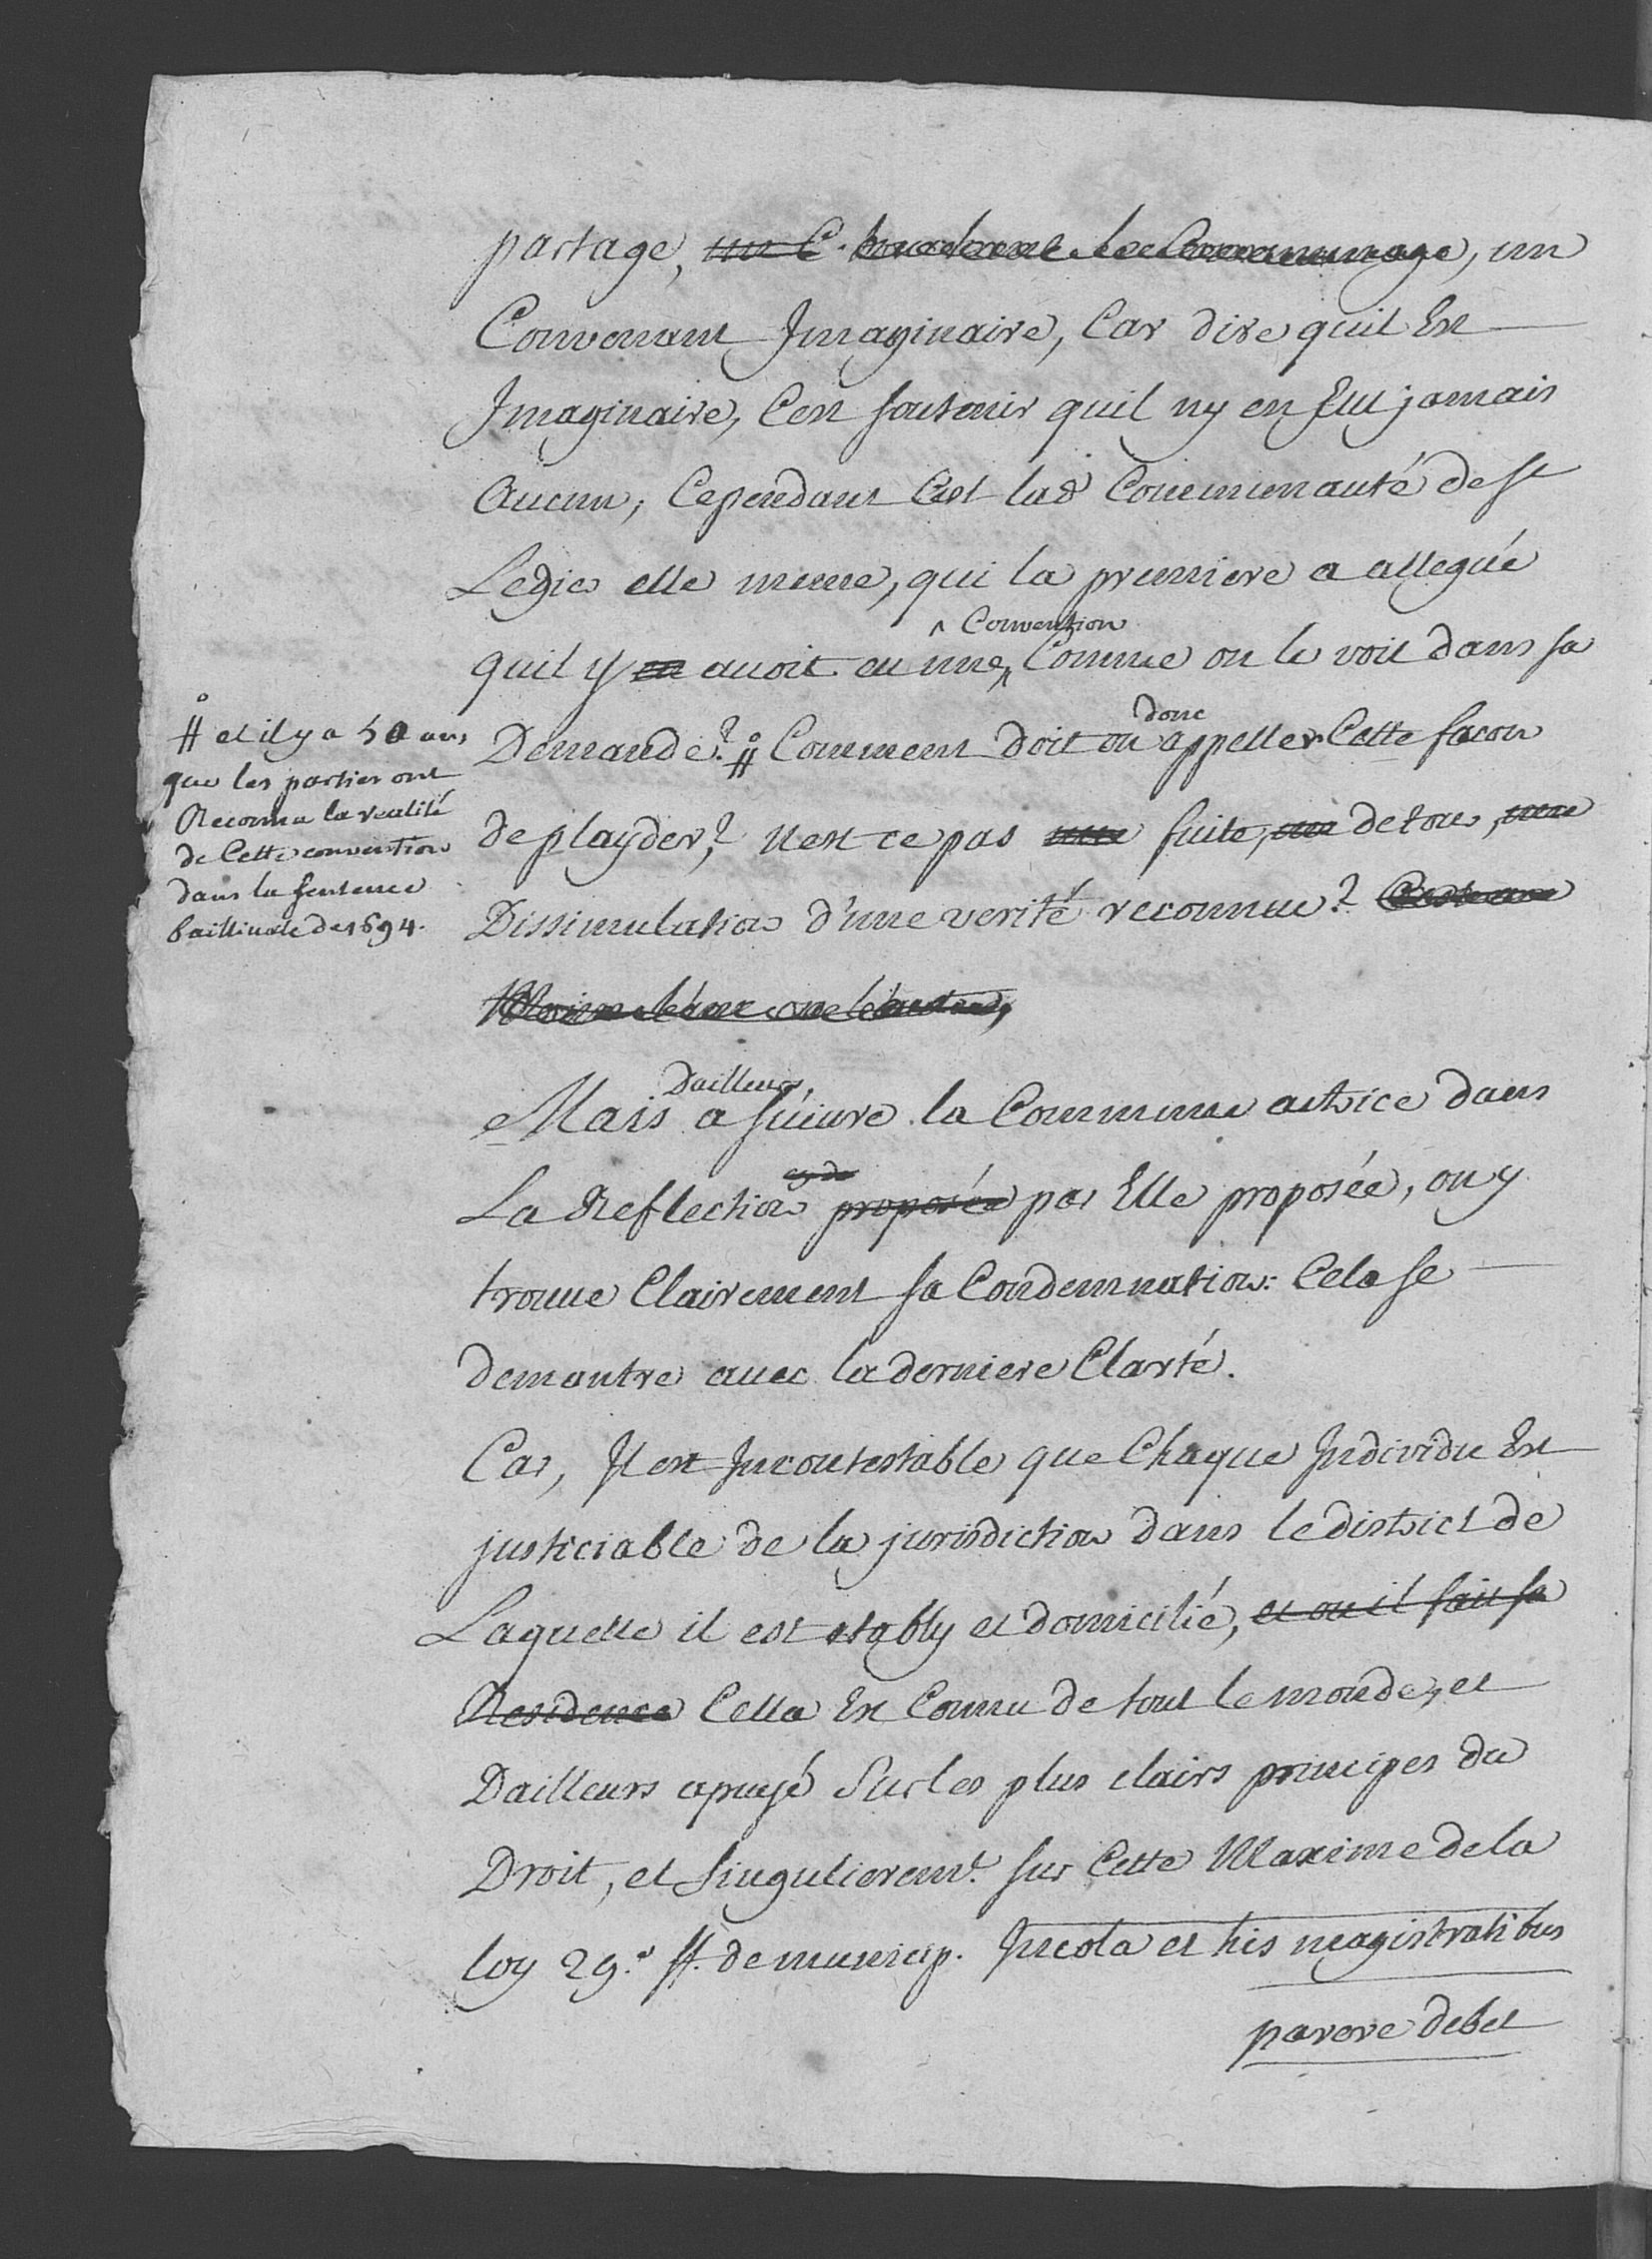 partage, un
Convenant Imaginaire, Car dire quil Est
Imaginaire, C'est soutenir quil ny en Eut jamais
Aucun, Cependant C'est lad.e Communauté de St
Legie elle meme, qui la premiere a allegué
^ Convention
quil y en avoit eu une, Comme on le voit dans sa
donc
Demande? # Comment doit on appeller Cette facon
de playder? n'est ce pas une fuite, un detour, une
Dissimulation d'une verité reconnue?
# et il y a 50 ans
que les parties ont
Reconnu la realité
de Cette convention
dans la sentence
baillivale de 1694.
Dailleurs,
Mais a suivre la Commune actrice dans
La Reflection proposée par Elle proposée, on y
trouve Clairement sa Condemnation: Cela se
demontre avec la derniere Clarté.
Car, Il est Incontestable que Chaque Individu Est
justiciable de la jurisdiction dans le district de
Laquelle il est etably et domicilié, et ou il fait sa
Residence Cella Est Connu de tout le monde, et
Dailleurs apuyé Sur les plus clairs principes du
Droit, et singulierem.t sur Cette Maxime de la
loy 29.e ff. de municip. Incola et his magistratibus
parere debet